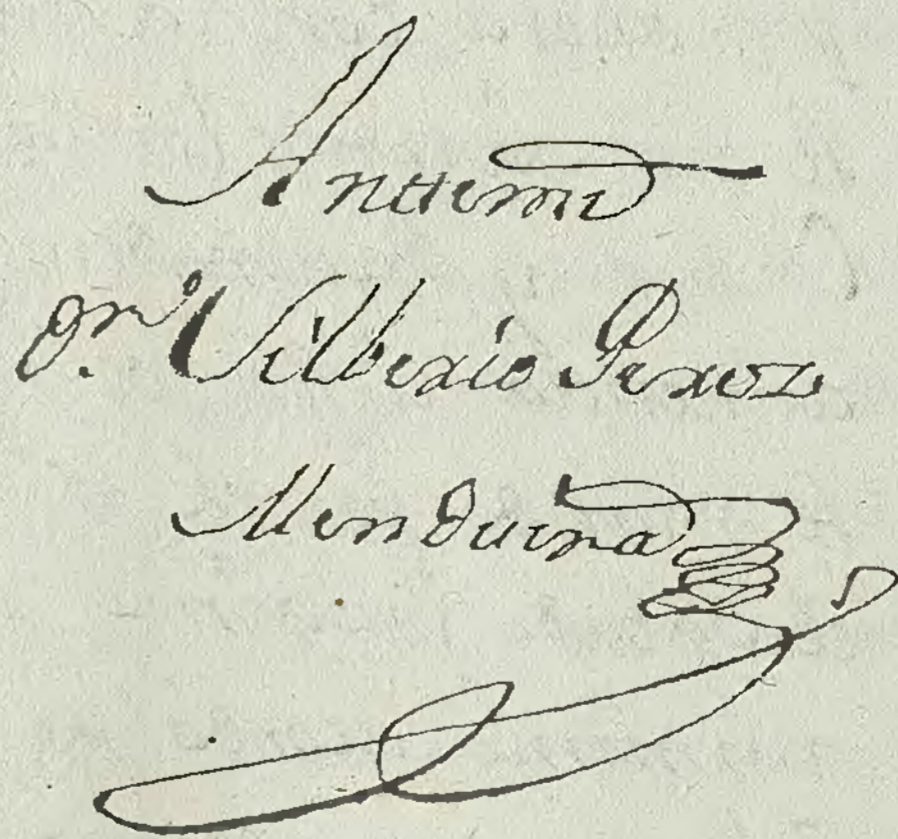 Ante mi
Dn. Silberio Perez
Menduina